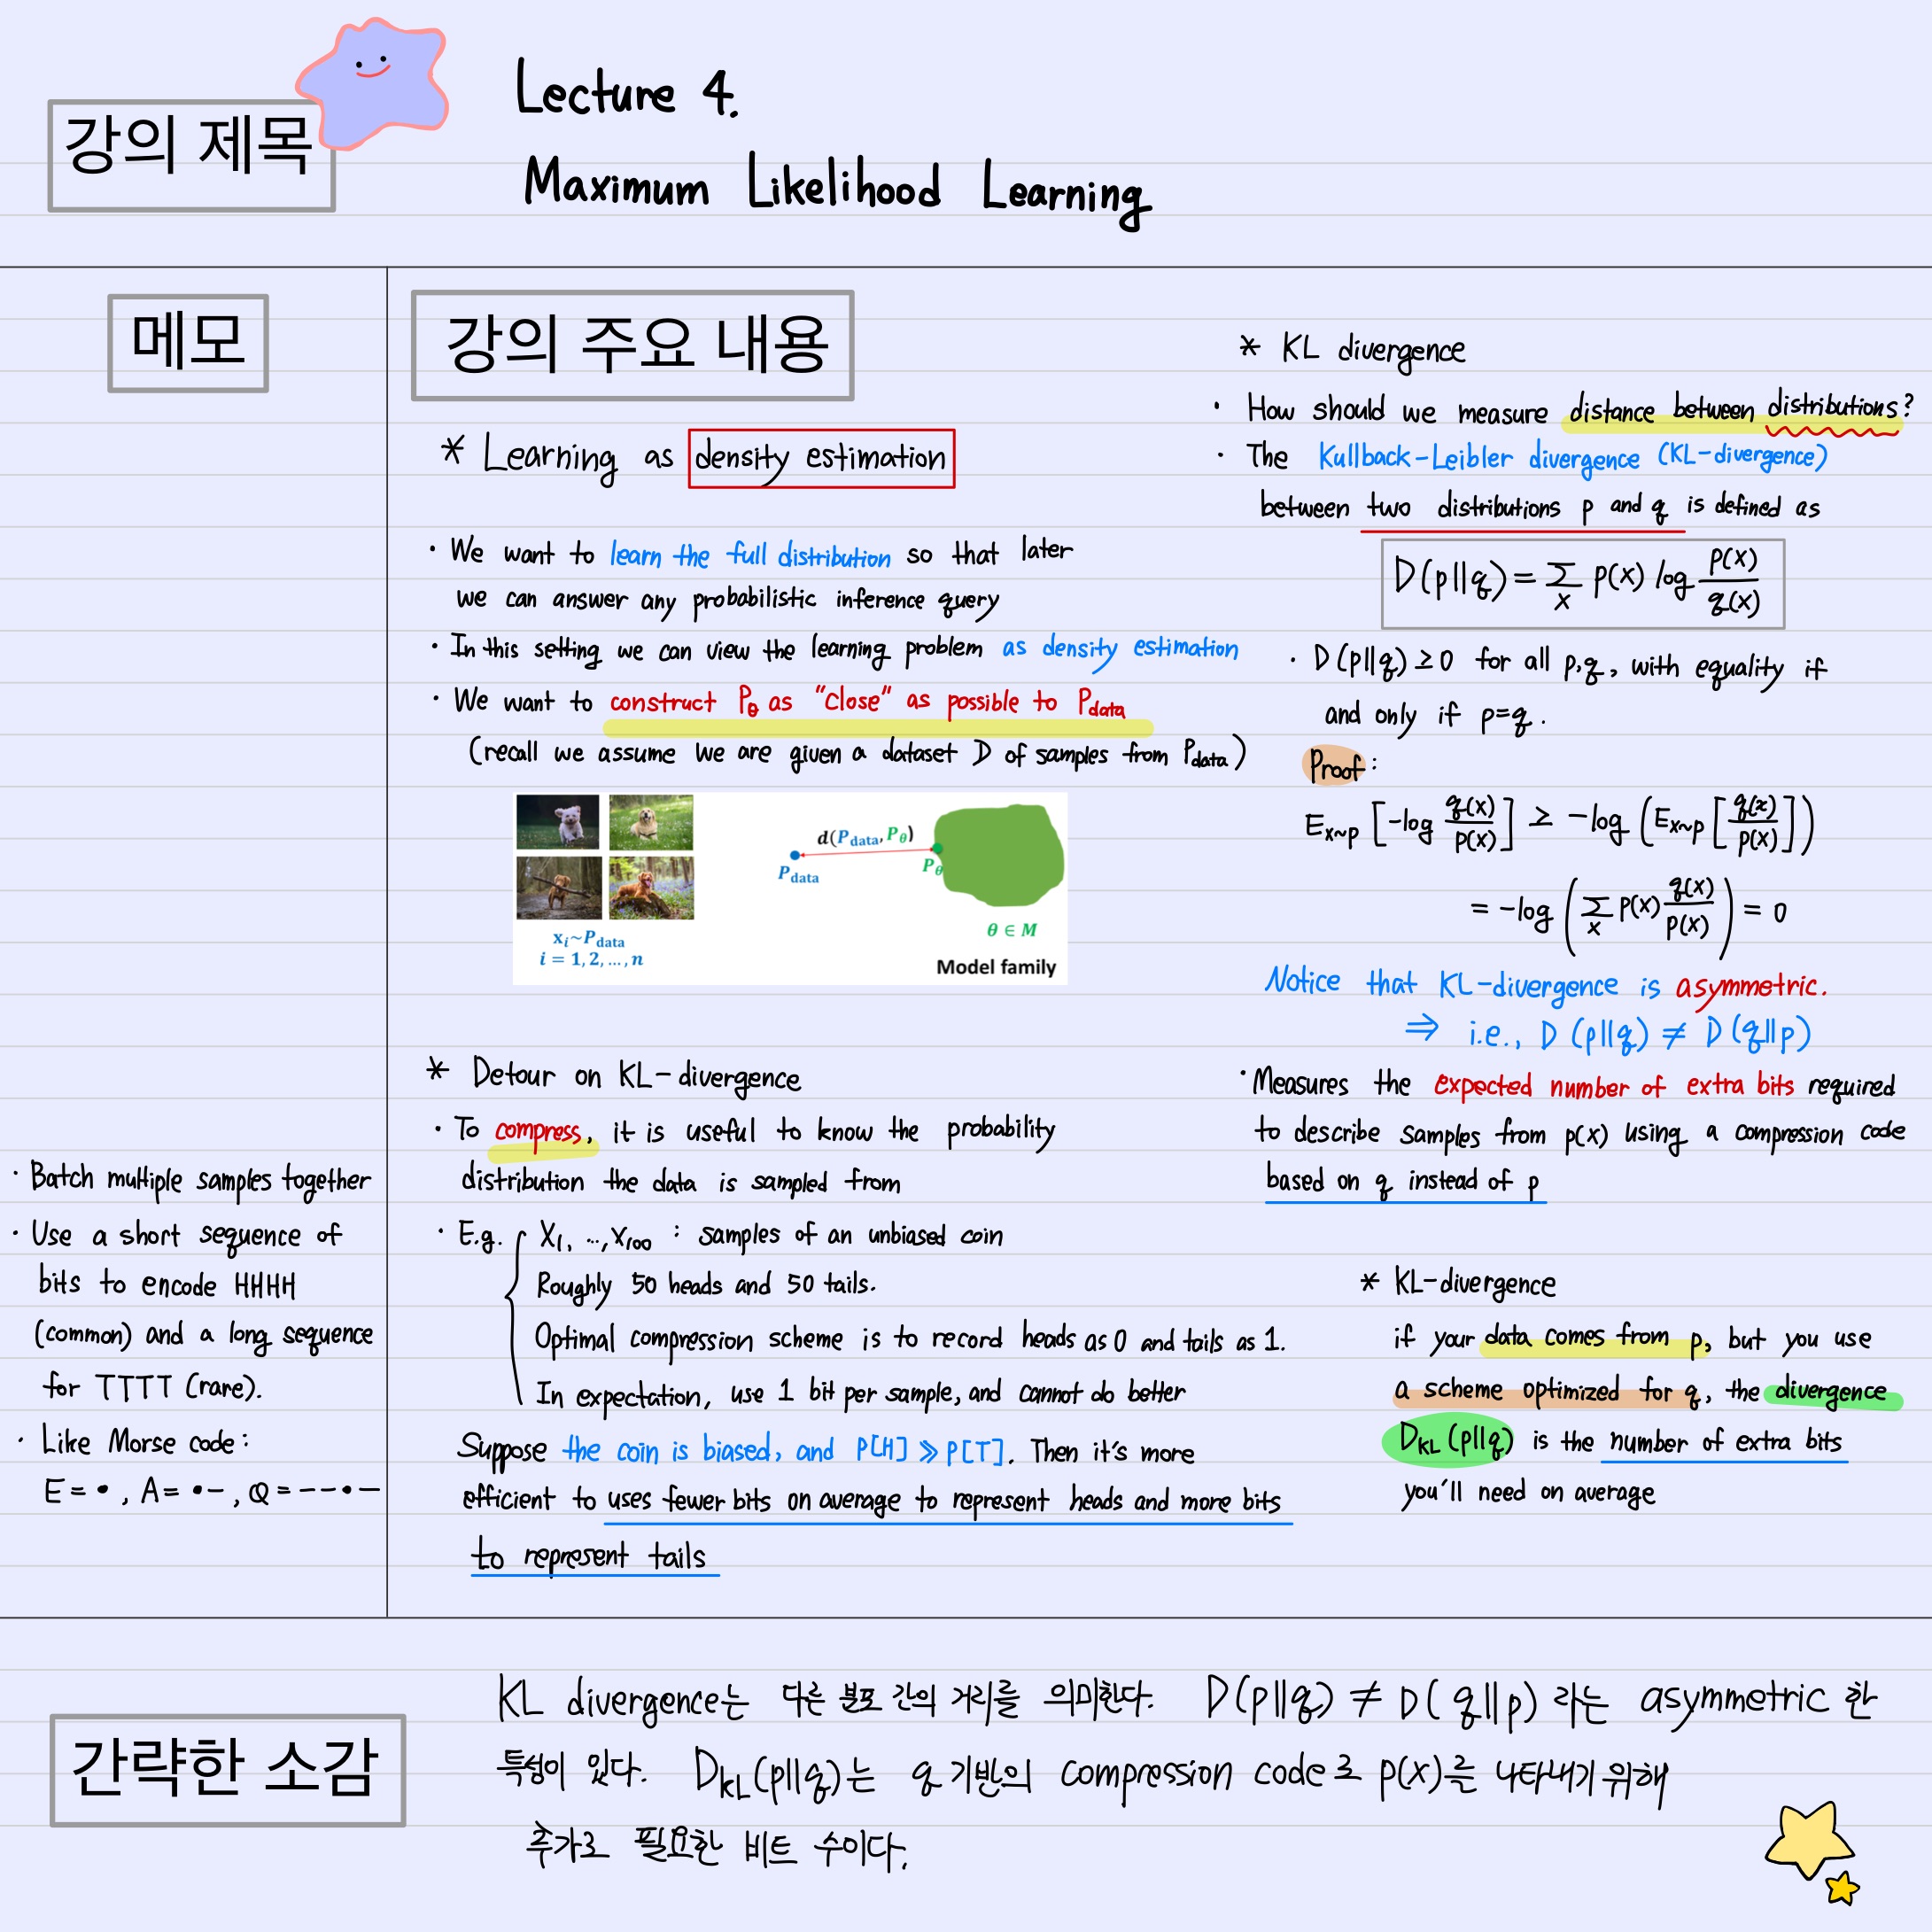 강의 제목
Lecture 4.
Maximum Likelihood Learning
메모
· Batch multiple samples together
· Use a short sequence of
bits to encode HHHH
(common) and a long sequence
for TTTT (rare).
· Like Morse code:
E = •, A = •−, Q = −−•−
강의 주요 내용
* Learning as density estimation
· We want to learn the full distribution so that later
we can answer any probabilistic inference query
· In this setting we can view the learning problem as density estimation
· We want to construct Pθ as "close" as possible to Pdata
(recall we assume we are given a dataset D of samples from Pdata)
d(Pdata, Pθ)
Pdata
Pθ
xi~Pdata
i = 1, 2, ..., n
θ ∈ M
Model family
* Detour on KL-divergence
· To compress, it is useful to know the probability
distribution the data is sampled from
· E.g. { X1, ..., X100 : samples of an unbiased coin
Roughly 50 heads and 50 tails.
Optimal compression scheme is to record heads as 0 and tails as 1.
In expectation, use 1 bit per sample, and cannot do better
Suppose the coin is biased, and P[H] ≫ P[T]. Then it's more
efficient to uses fewer bits on average to represent heads and more bits
to represent tails
* KL divergence
· How should we measure distance between distributions?
· The Kullback-Leibler divergence (KL-divergence)
between two distributions p and q is defined as
D(p||q) = Σx p(x) log p(x)/q(x)
· D(p||q) ≥ 0 for all p,q, with equality if
and only if p=q.
Proof:
Ex~p [-log q(x)/p(x)] ≥ -log (Ex~p [q(x)/p(x)])
= -log (Σx p(x) q(x)/p(x)) = 0
Notice that KL-divergence is asymmetric.
⇒ i.e., D(p||q) ≠ D(q||p)
· Measures the expected number of extra bits required
to describe samples from p(x) using a compression code
based on q instead of p
* KL-divergence
if your data comes from p, but you use
a scheme optimized for q, the divergence
DKL(p||q) is the number of extra bits
you'll need on average
간략한 소감
KL divergence는 다른 분포 간의 거리를 의미한다. D(p||q) ≠ D(q||p) 라는 asymmetric 한
특성이 있다. DKL(p||q)는 q 기반의 compression code로 p(x)를 나타내기 위해
추가로 필요한 비트 수이다.